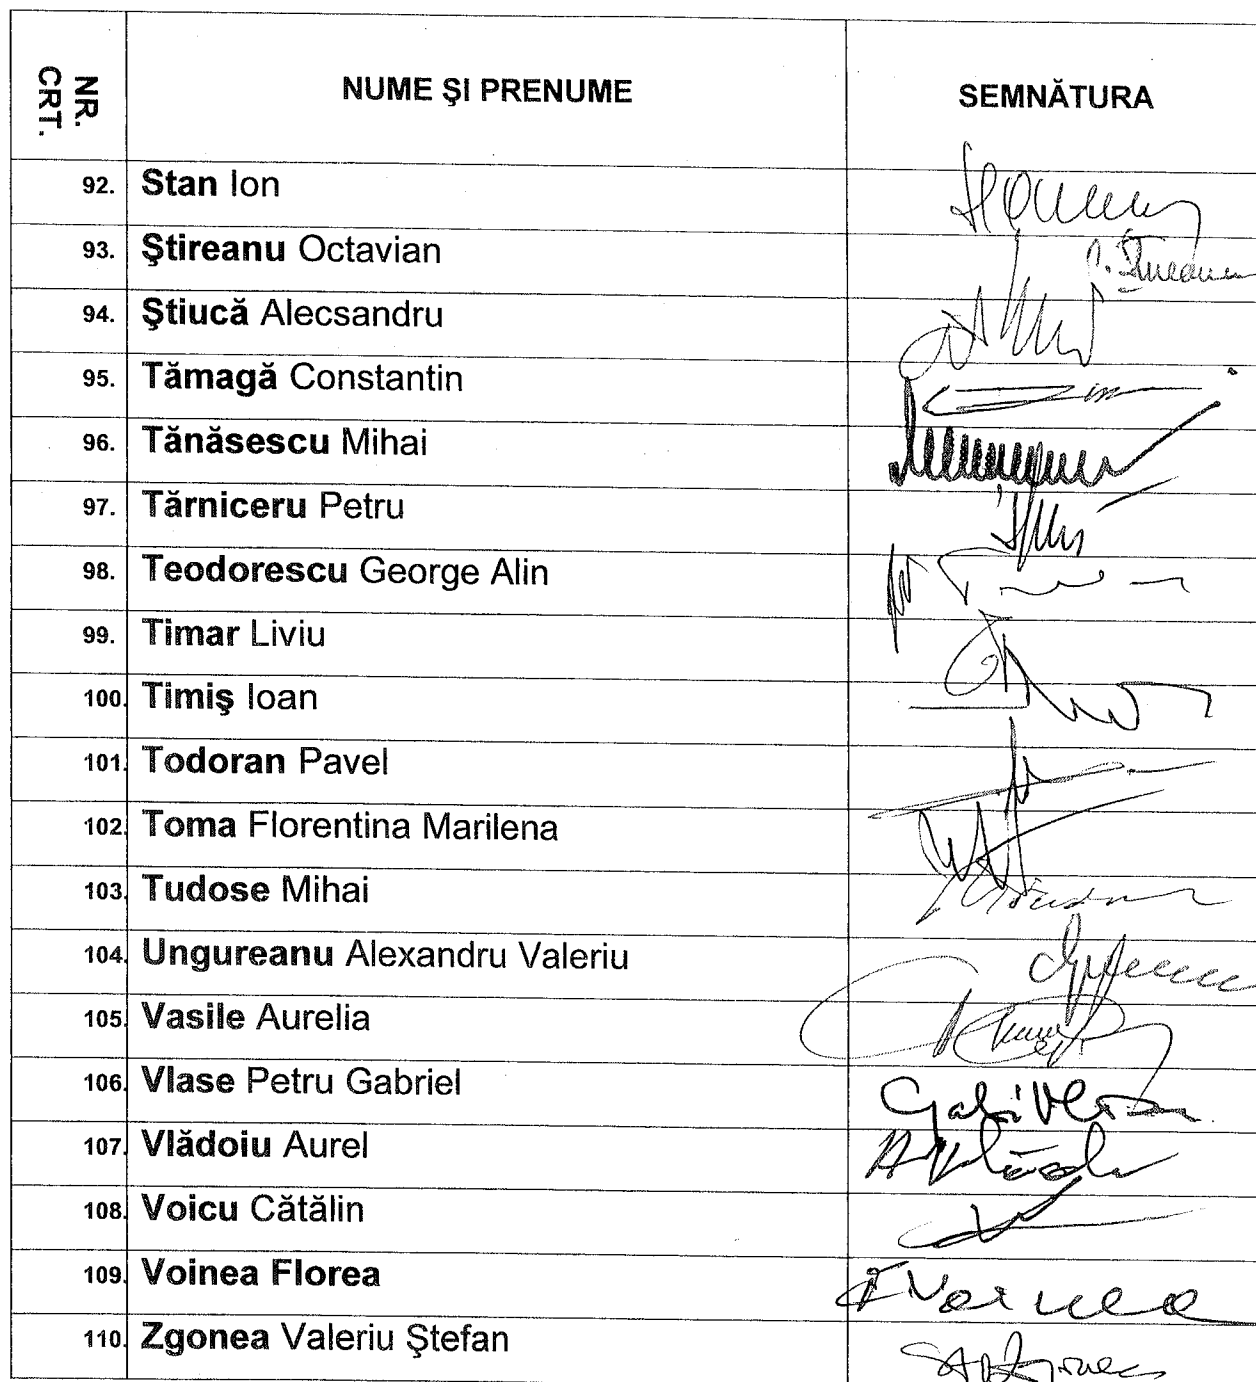 NR. CRT. NUME ŞI PRENUME SEMNĂTURA
92. Stan Ion
93. Ştireanu Octavian
94. Ştiucă Alecsandru
95. Tămagă Constantin
96. Tănăsescu Mihai
97. Tărniceru Petru
98. Teodorescu George Alin
99. Timar Liviu
100. Timiş Ioan
101. Todoran Pavel
102. Toma Florentina Marilena
103. Tudose Mihai
104. Ungureanu Alexandru Valeriu
105. Vasile Aurelia
106. Vlase Petru Gabriel
107. Vlădoiu Aurel
108. Voicu Cătălin
109. Voinea Florea
110. Zgonea Valeriu Ştefan